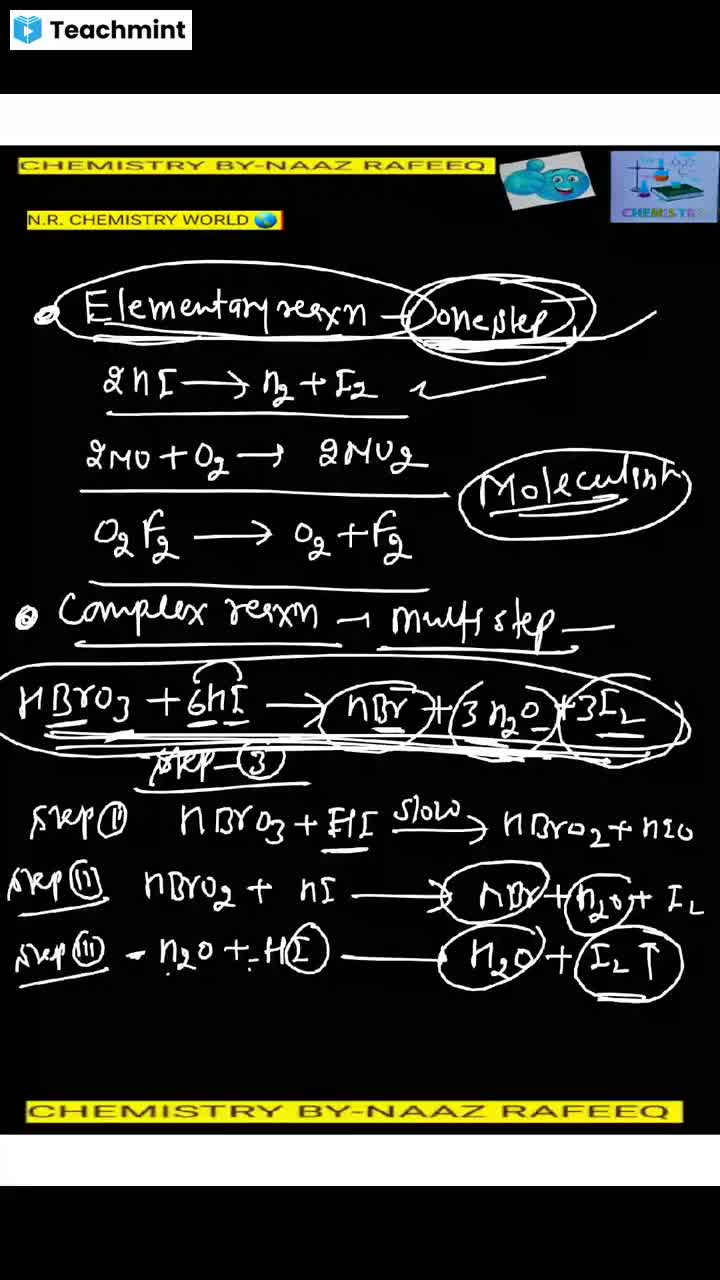 Teachmint
CHEMISTRY BY-NAAZ RAFEEQ
CHEMISTRY
N.R. CHEMISTRY WORLD
Elementary reaxn → one step
2HI → H2 + I2
2NO + O2 → 2NO2
O2F2 → O2 + F2
Complex reaxn → multi step
HBrO3 + 6HI → HBr + 3H2O + 3I2
Step - 3
Step (i) HBrO3 + HI slow → HBrO2 + HIO
Step (ii) HBrO2 + HI → HBr + H2O + I2
Step (iii) - H2O + HI → H2O + I2 ↑
CHEMISTRY BY-NAAZ RAFEEQ